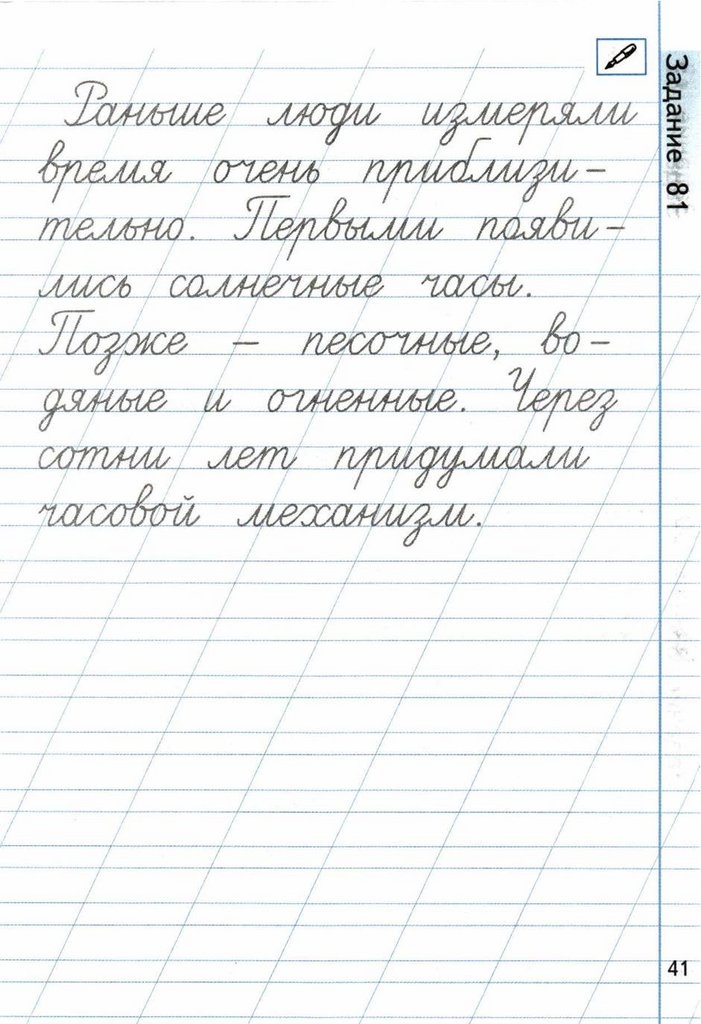 Раньше люди измеряли
время очень приблизи-
тельно. Первыми появи-
лись солнечные часы.
Позже – песочные, во-
дяные и огненные. Через
сотни лет придумали
часовой механизм.
Задание 81
41